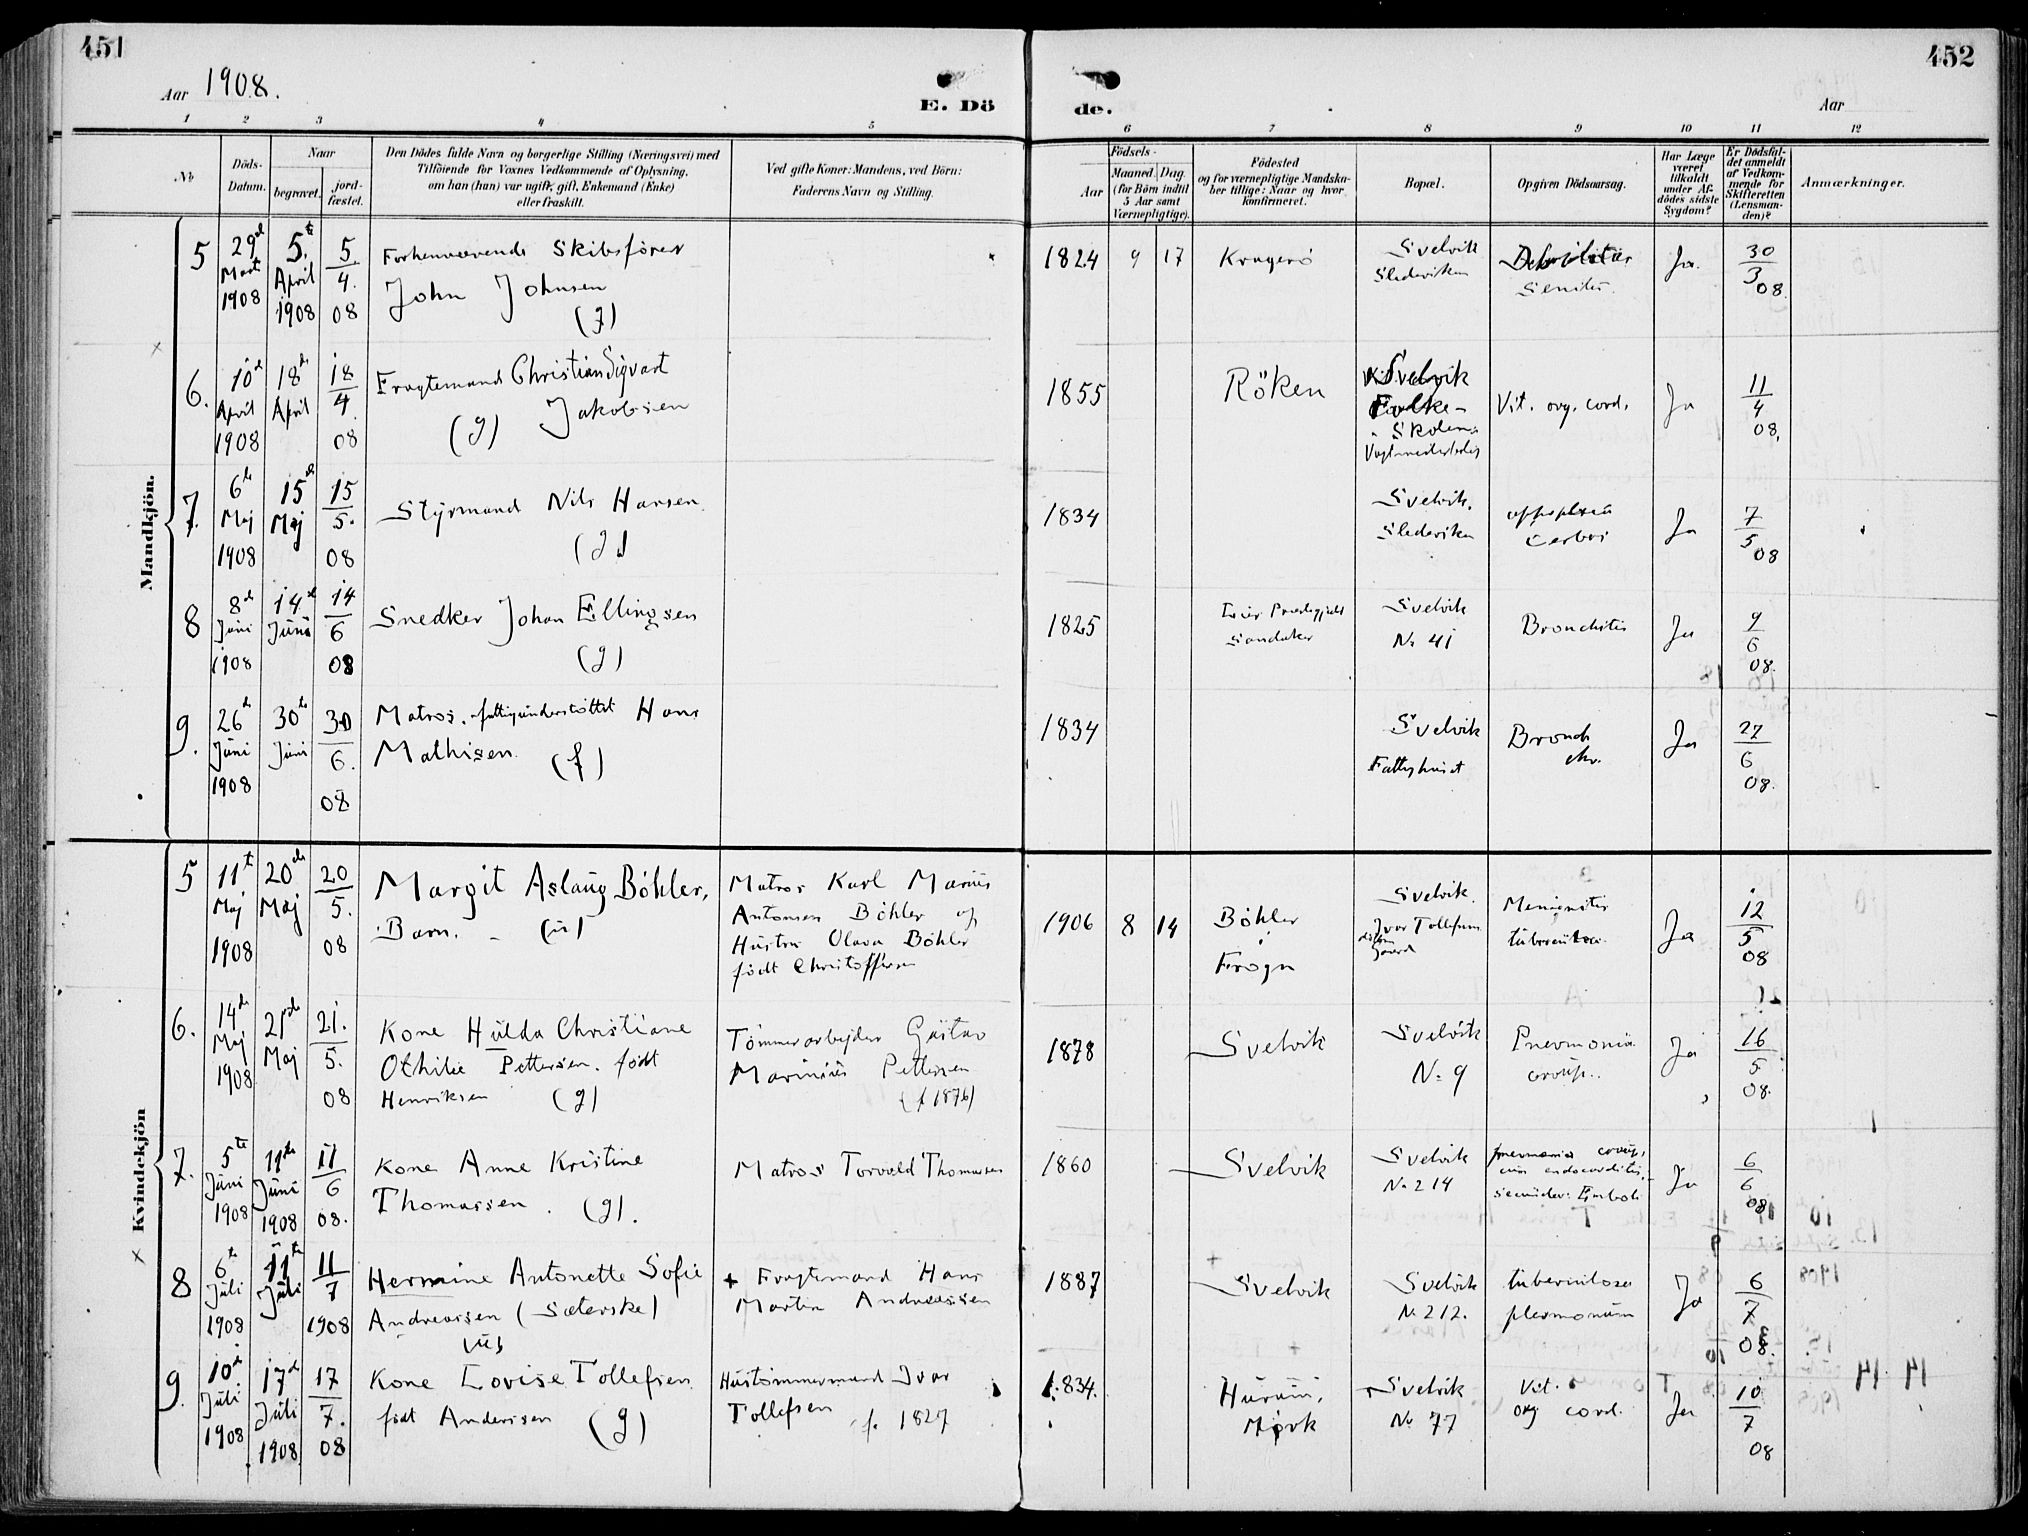 451
Aar 1908.
E. Dö
de.
452
Aar
1 2 3 4 5 6 7 8 9 10 11 12
No
Döds-
Datum.
Naar
begravet.
jord-
fæstet.
Den Dödes fulde Navn og borgerlige Stilling (Næringsvei) med
Tilföiende for Voxnes Vedkommende af Oplysning,
om han (hun) var ugift, gift, Enkemand (Enke)
eller fraskilt.
Ved gifte Koner: Mandens, ved Börn:
Faderens Navn og Stilling.
Födsels-
Aar
Maaned. Dag.
(for Börn indtil
5 Aar samt
Værnepligtige).
Födested
og for værnepligtige Mandska-
ber tillige: Naar og hvor
konfirmeret.
Bopæl.
Opgiven Dödsaarsag.
Har Læge
været
tilkaldt
under Af-
dödes sidste
Sygdom?
Er Dödsfal-
det anmeldt
af Vedkom-
mende for
Skifteretten
(Lensman-
den)?
Anmærkninger.
Mandkjön.
5
29de
Mart
1908
5te
April
1908
5.
4.
08
Forhenværende Skibsförer
John Johnsen
(g)
1824 9 17
Kragerö
Svelvik
Sledeviken
Debilitas
Senilis.
Ja.
30
3
08.
6.
10de
April
1908
18de
April
18
4.
08
Fragtemand Christian Sigvart
(g) Jakobsen
1855
Röken
Svelvik
Folke-
Skolen
Vit. org. cord.
Ja
11
4
08.
7.
6te
Maj
1908
15de
Maj
15
5.
08
Styrmand Nils Hansen
(g)
1834
Svelvik.
Sledeviken
Ja
7
5
08
8
8de
Juni
1908
14de
Juni
14
6
08
Snedker Johan Ellingsen
(g)
1825
Lier Præstegjeld
Sandaker
Svelvik
No 41
Bronchitis
Ja
9
6
08.
9.
26de
Juni
1908
30te
Juni
30
6.
08
Matros. fattigunderstöttet Hans
Mathisen. (f)
1834
Svelvik
Fattighuset
Bronch
chr.
Ja
27
6
08.
Kvindekjön
5
11te
Maj
1908
20de
Maj
20
5.
08
Margit Aslaug Böhler,
Barn. - (u)
Matros Karl Marius
Antonsen Böhler og
Hustru Olava Böhler
födt Christoffersen
1906 8 14
Böhler
Frogn
Svelvik.
Ivar Tollefsens
Gaard
Meningitis
tuberculosa.
Ja
12
5
08
6.
14de
Maj
1908
21de
Maj
21.
5.
08
Kone Hulda Christiane
Othilie Pettersen. födt
Henriksen (g)
Tömmerarbejder Gustav
Marinius Pettersen
(f 1876)
1878
Svelvik
Svelvik
No 9
Pneumonia
croup.
Ja
16
5
08.
7.
5te
Juni
1908
11de
Juni
1908
11
6
08.
Kone Anne Kristine
Thomassen. (g).
Matros Torvald Thomassen
1860
Svelvik
Svelvik
No 214
pneumonia croup,
cum endocarditis,
Ja
6
6
08
8
6te
Juli
1908
11te
Juli
11
7
1908
Hermine Antonette Sofie
Andreassen (Sæterske)
(u)
+ Fragtemand Hans
Martin Andreassen
1887
Svelvik
Svelvik
No 212.
tuberculose
plevmonum
Ja
6
7
08.
9.
10de
Juli
1908
17de
Juli
1908
17
7.
08
Kone Lovise Tollefsen
födt Andersen (g)
Hustömmermand Ivar
Tollefsen f. 1827
1834.
Hurum,
Mörk
Svelvik
No 77
Vit.
org cord.
Ja
10
7
08